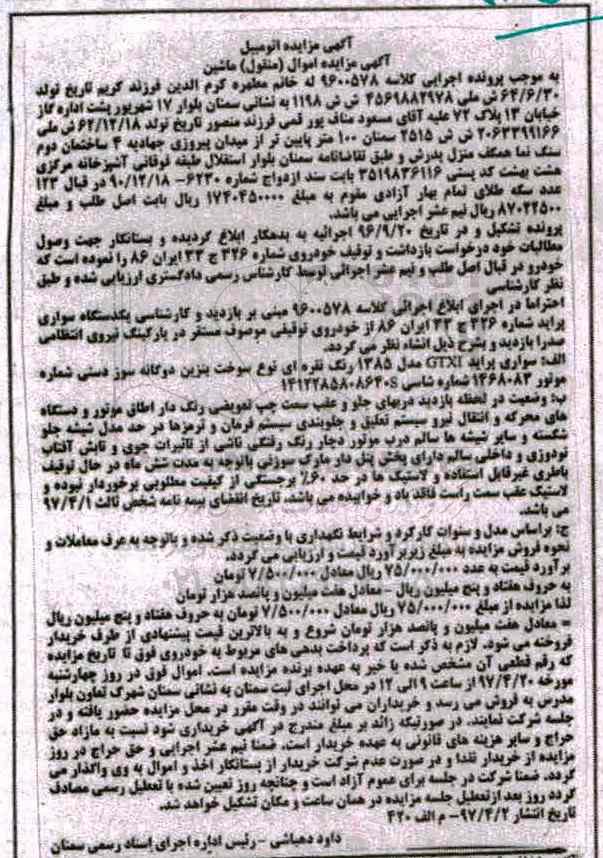 آگهی مزایده اتومبیل
آگهی مزایده اموال (منقول) ماشین
به موجب پرونده اجرایی کلاسه ۹۶۰۰۵۷۸ له خانم مطهره کرم الدین فرزند کریم تاریخ تولد
۶۴/۶/۳۰ ش ملی ۴۵۶۹۸۸۲۹۷۸ ش ش ۱۱۹۸ به نشانی سمنان بلوار ۱۷ شهریور پشت اداره گاز
خیابان ۱۳ پلاک ۷۲ علیه آقای مسعود مناف پور قمی فرزند منصور تاریخ تولد ۶۲/۱۲/۱۸ ش ملی
۲۰۶۳۳۹۹۱۶۶ ش ش ۲۵۱۵ سمنان ۱۰۰ متر پایین تر از میدان پیروزی جهادیه ۴ ساختمان دوم
سنگ نما همکف منزل پدرش و طبق تقاضانامه سمنان بلوار استقلال طبقه فوقانی آشپزخانه مرکزی
هشت بهشت کد پستی ۳۵۱۹۸۳۶۱۱۶ بابت سند ازدواج شماره ۶۲۳۰- ۹۰/۱۲/۱۸ در قبال ۱۲۳
عدد سکه طلای تمام بهار آزادی مقوم به مبلغ ۱۷۴۰۴۵۰۰۰۰ ریال بابت اصل طلب و مبلغ
۸۷۰۲۲۵۰۰ ریال نیم عشر اجرایی می باشد.
پرونده تشکیل و در تاریخ ۹۶/۹/۲۰ اجرائیه به بدهکار ابلاغ گردیده و بستانکار جهت وصول
مطالبات خود درخواست بازداشت و توقیف خودروی شماره ۳۲۶ ج ۳۳ ایران ۸۶ را نموده است که
خودرو در قبال اصل طلب و نیم عشر اجرائی توسط کارشناس رسمی دادگستری ارزیابی شده و طبق
نظر کارشناسی
احتراما در اجرای ابلاغ اجرائی کلاسه ۹۶۰۰۵۷۸ مبنی بر بازدید و کارشناسی یکدستگاه سواری
پراید شماره ۳۲۶ ج ۳۳ ایران ۸۶ از خودروی توقیفی موصوف مستقر در پارکینگ نیروی انتظامی
صدرا بازدید و بشرح ذیل انشاء نظر می گردد.
الف: سواری پراید GTXI مدل ۱۳۸۵ رنگ نقره ای نوع سوخت بنزین دوگانه سوز دستی شماره
موتور ۱۴۶۸۰۸۳ شماره شاسی S۱۴۱۲۲۸۵۸۰۸۶۴۰
ب: وضعیت در لحظه بازدید دربهای جلو و عقب سمت چپ تعویضی رنگ دار اطاق موتور و دستگاه
های محرکه و انتقال نیرو سیستم تعلیق و جلوبندی سیستم فرمان و ترمزها در حد مدل شیشه جلو
شکسته و سایر شیشه ها سالم درب موتور دچار رنگ رفتگی ناشی از تاثیرات جوی و تابش آفتاب
تودوزی و داخلی سالم دارای پخش پنل دار مارک سوزنی باتوجه به مدت شش ماه در حال توقیف
باطری غیرقابل استفاده و لاستیک ها در حد ۶۰٪ برجستگی از کیفیت مطلوبی برخوردار نبوده و
لاستیک عقب سمت راست فاقد باد و خوابیده می باشد. تاریخ انقضای بیمه نامه شخص ثالث ۹۷/۴/۱
می باشد.
ج: براساس مدل و سنوات کارکرد و شرایط نگهداری با وضعیت ذکر شده و باتوجه به عرف معاملات و
نحوه فروش مزایده به مبلغ زیر برآورد قیمت و ارزیابی می گردد.
برآورد قیمت به عدد ۷۵/۰۰۰/۰۰۰ ریال معادل ۷/۵۰۰/۰۰۰ تومان
به حروف هفتاد و پنج میلیون ریال - معادل هفت میلیون و پانصد هزار تومان
لذا مزایده از مبلغ ۷۵/۰۰۰/۰۰۰ ریال معادل ۷/۵۰۰/۰۰۰ تومان به حروف هفتاد و پنج میلیون ریال
= معادل هفت میلیون و پانصد هزار تومان شروع و به بالاترین قیمت پیشنهادی از طرف خریدار
فروخته می شود. لازم به ذکر است که پرداخت بدهی های مربوط به خودروی فوق تا تاریخ مزایده
که رقم قطعی آن مشخص شده یا خیر به عهده برنده مزایده است. اموال فوق در روز چهارشنبه
مورخه ۹۷/۴/۲۰ از ساعت ۹ الی ۱۲ در محل اجرای ثبت سمنان به نشانی سمنان شهرک تعاون بلوار
مدرس به فروش می رسد و خریداران می توانند در وقت مقرر در محل مزایده حضور یافته و در
جلسه شرکت نمایند. در صورتیکه زائد بر مبلغ مندرج در آگهی خریداری شود نسبت به مازاد حق
حراج و سایر هزینه های قانونی به عهده خریدار است. ضمنا نیم عشر اجرایی و حق حراج در روز
مزایده از خریدار نقدا و در صورت عدم شرکت خریدار از بستانکار اخذ و اموال به وی واگذار می
گردد. ضمنا شرکت در جلسه برای عموم آزاد است و چنانچه روز تعیین شده با تعطیل رسمی مصادف
گردد روز بعد ازتعطیل جلسه مزایده در همان ساعت و مکان تشکیل خواهد شد.
تاریخ انتشار ۹۷/۴/۲- م الف ۴۲۰
داود دهباشی - رئیس اداره اجرای اسناد رسمی سمنان